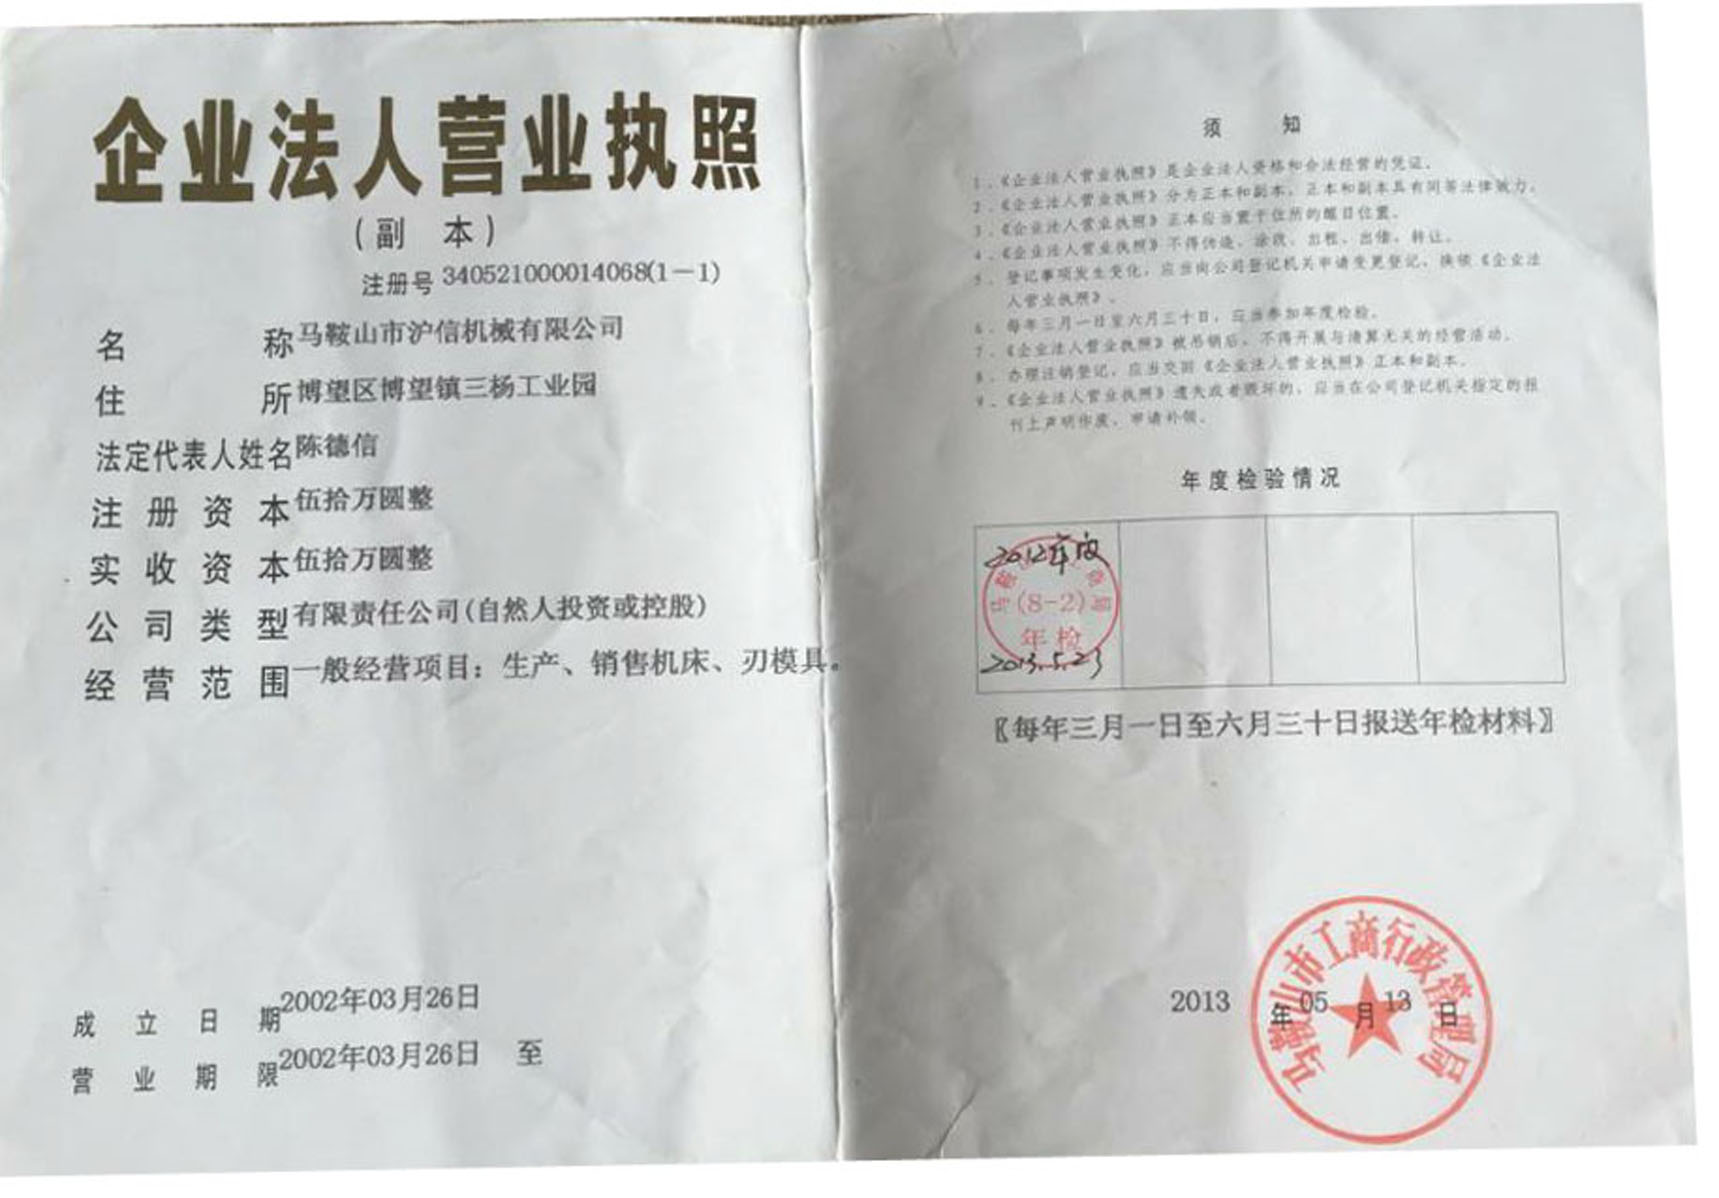 企业法人营业执照
(副 本)
注册号 340521000014068(1-1)
名 称 马鞍山市沪信机械有限公司
住 所 博望区博望镇三杨工业园
法定代表人姓名 陈德信
注册资本 伍拾万圆整
实收资本 伍拾万圆整
公司类型 有限责任公司(自然人投资或控股)
经营范围 一般经营项目：生产、销售机床、刃模具。
成立日期 2002年03月26日
营业期限 2002年03月26日 至
须 知
1.《企业法人营业执照》是企业法人资格和合法经营的凭证。
2.《企业法人营业执照》分为正本和副本，正本和副本具有同等法律效力。
3.《企业法人营业执照》正本应当置于住所的醒目位置。
4.《企业法人营业执照》不得伪造、涂改、出租、出借、转让。
5.登记事项发生变化，应当向公司登记机关申请变更登记，换领《企业法
人营业执照》。
6.每年三月一日至六月三十日，应当参加年度检验。
7.《企业法人营业执照》被吊销后，不得开展与清算无关的经营活动。
8.办理注销登记，应当交回《企业法人营业执照》正本和副本。
9.《企业法人营业执照》遗失或者毁坏的，应当在公司登记机关指定的报
刊上声明作废，申请补领。
年度检验情况
2012年度
(8-2)
年检
2013.5.23
〖每年三月一日至六月三十日报送年检材料〗
马鞍山市工商行政管理局
2013 年 05 月 13 日